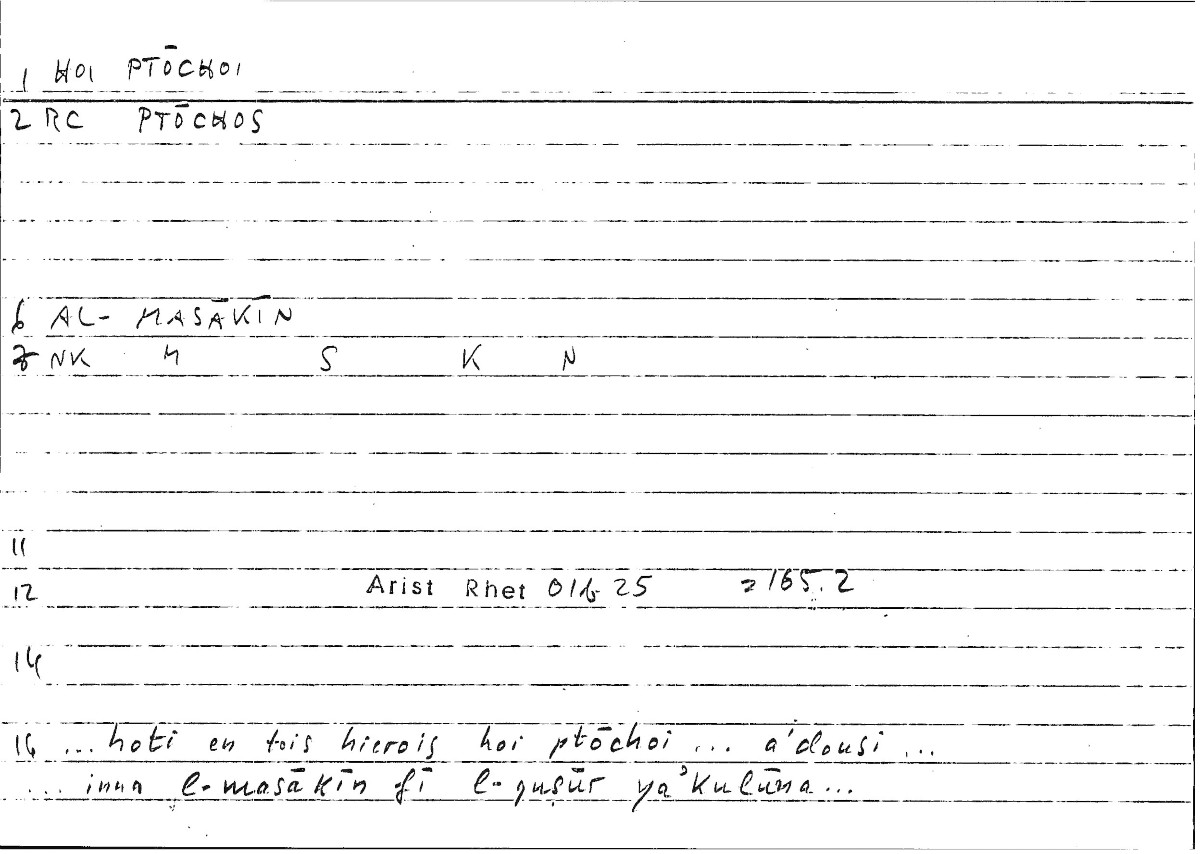 1 HOI PTŌCHOI
2 RC PTŌCHOS
6 AL- MASĀKĪN
7 NK M S K N
11
12 Arist Rhet 01b 25 =165.2
14
16 ...hoti en tois hierois hoi ptōchoi ... a'dousi ...
... inna l-masākīn fī l-quṣūr ya'kulūna...